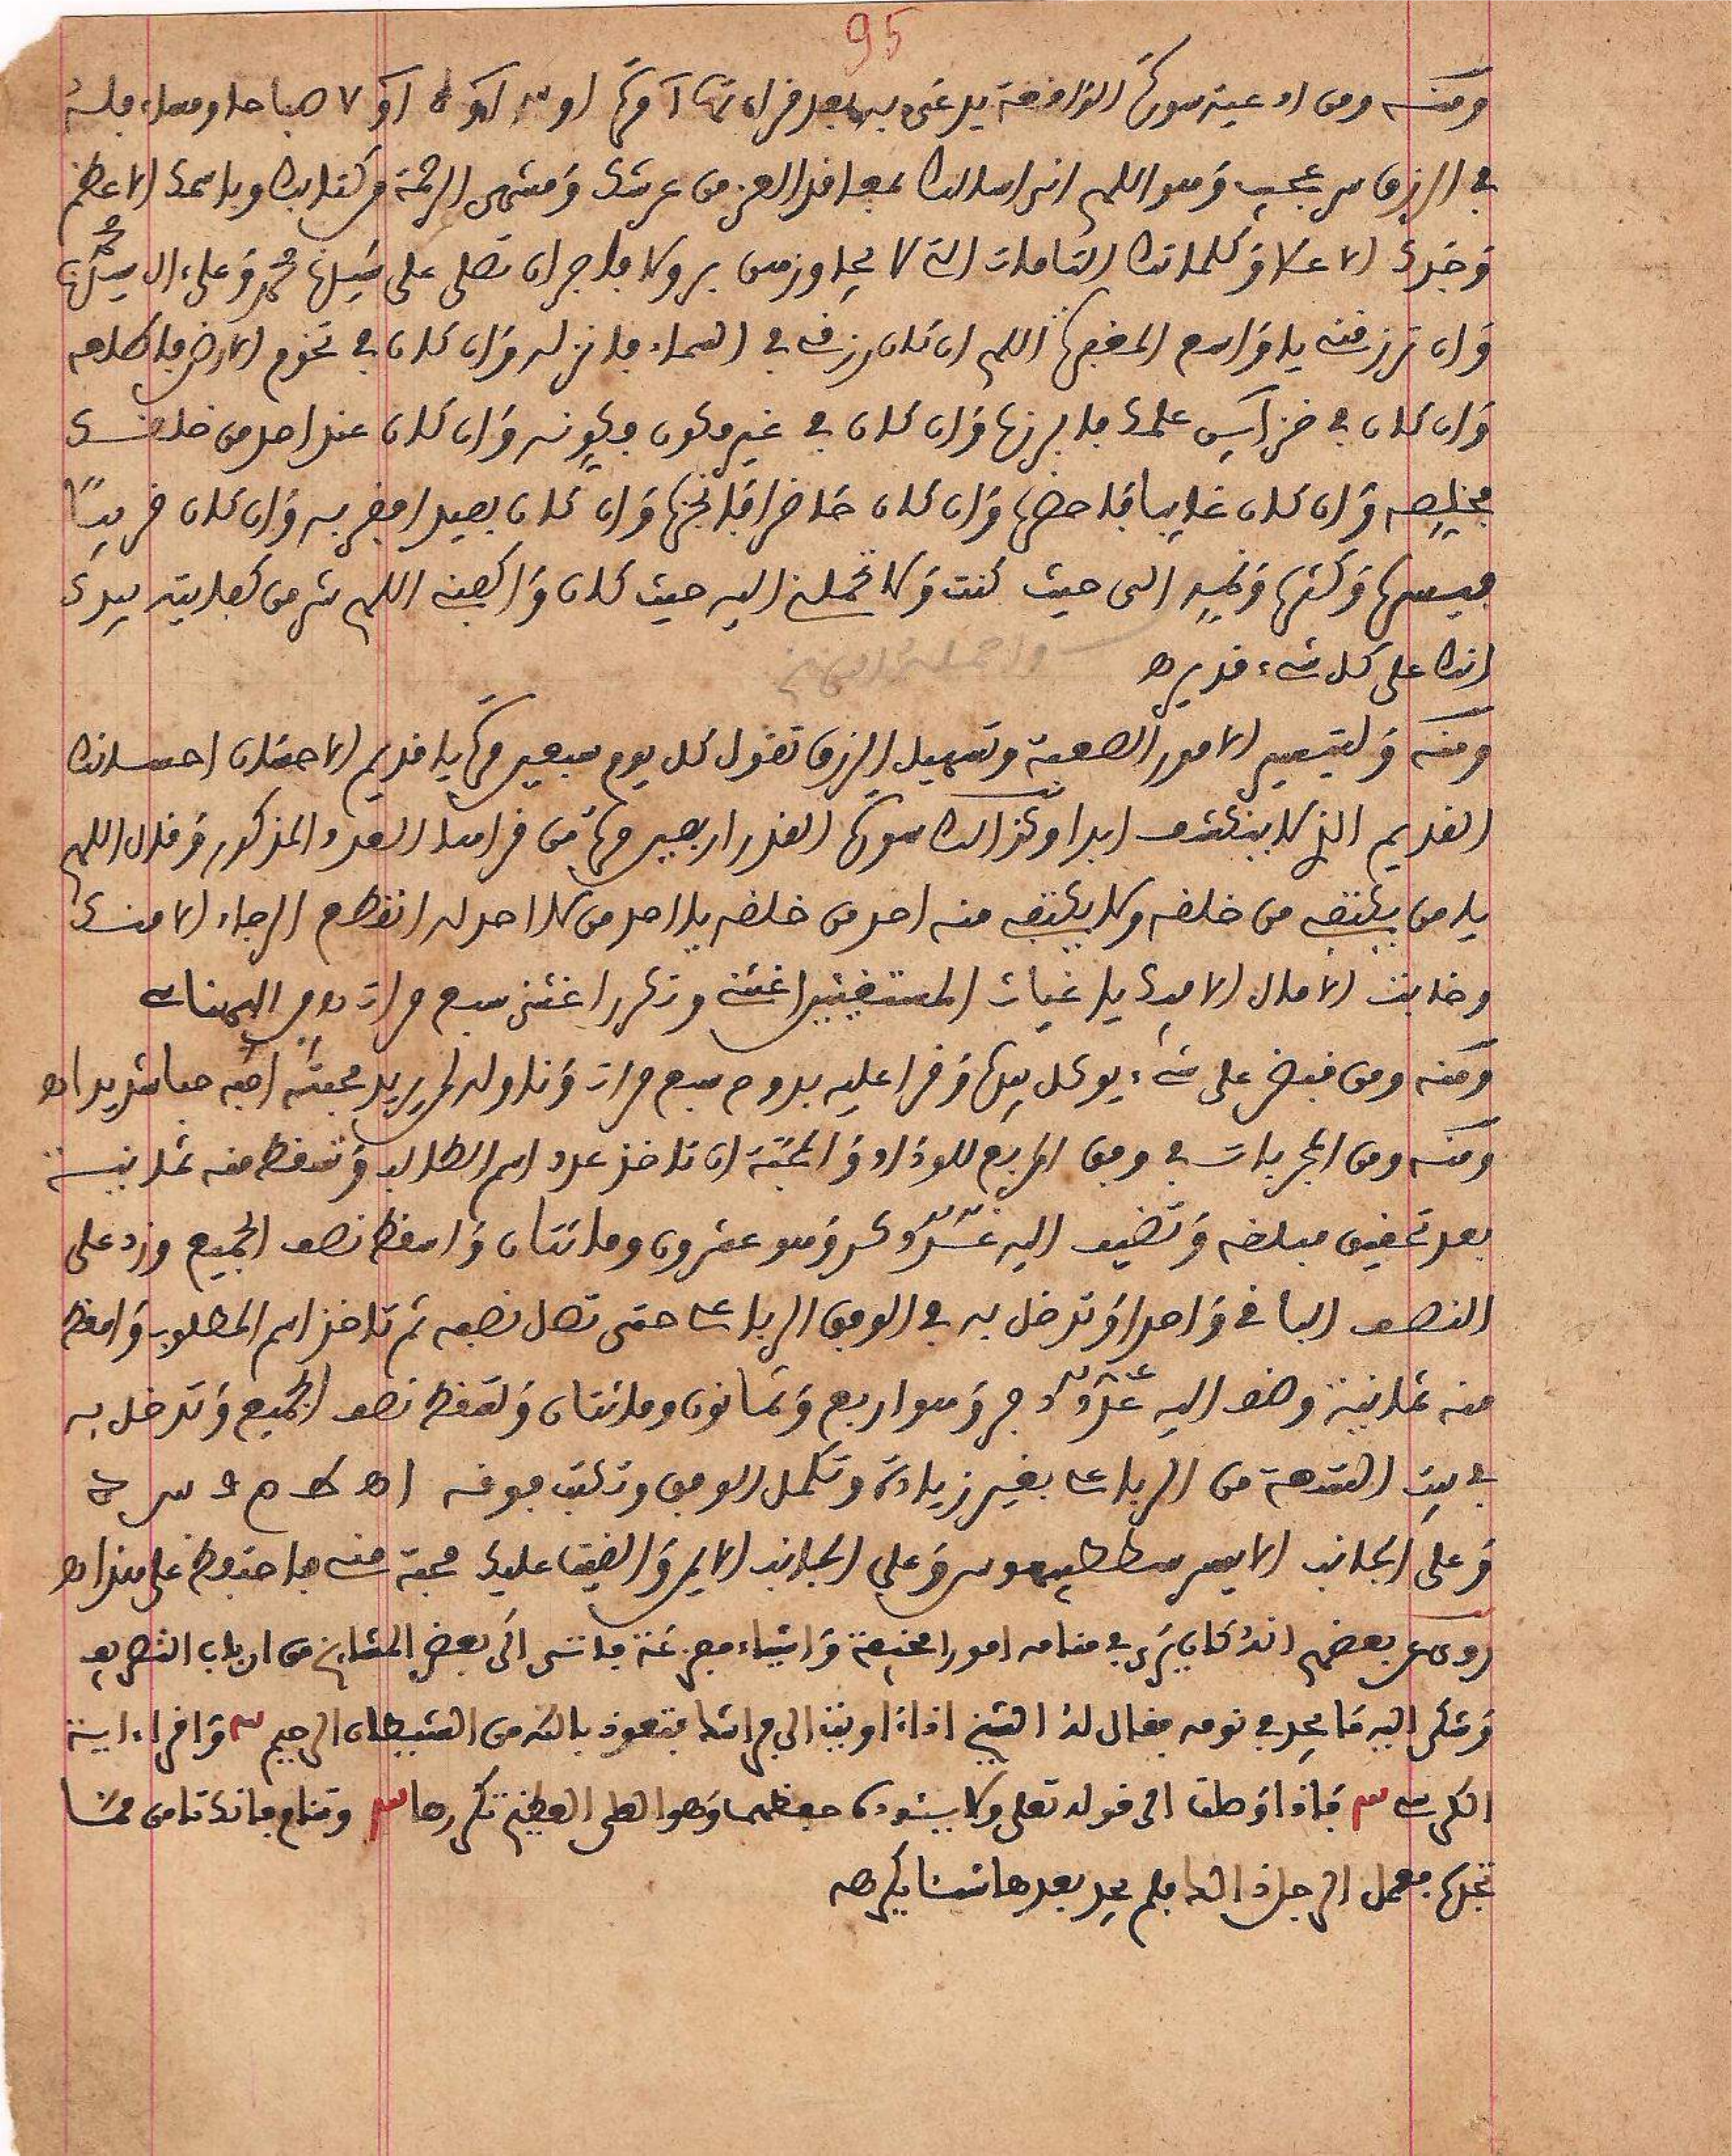 95
ومنه ومن ادعية سورة الواقعة يدعى به بعد قراءتها مرة او ٣ او ٥ او ٧ صباحا ومساء فله
في الرزق سر عجيب وهو اللهم اني اسالك بمعاقد العز من عرشك ومنتهى الرحمة من كتابك وباسمك الاعظم
وجدك الاعلا وكلماتك التامات التي لا يجاوزهن بر ولا فاجر ان تصلي على سيدنا محمد وعلى ال سيدنا محمد
وان ترزقني يا واسع المغفرة اللهم ان كان رزقي في السماء فانزله وان كان في تخوم الارض فاطلعه
وان كان في خزاين علمك فابرزه وان كان في غير مكون فكونه وان كان عند احد من خلقك
فخلصه وان كان غايبا فاحضره وان كان حاضرا فانجزه وان كان بعيدا فقربه وان كان قريبا
فيسره وكثره الي حيث كنت ولا تحملني اليه حيث كان واكفني اللهم شر من كفايته بيدك
انك على كل شيء قدير ه
ومنه ولتيسير الامور الصعبة وتسهيل الرزق تقول كل يوم سبعين مرة يا قديم الاحسان احسانك
القديم الذي لا ينكشف ابدا وكذالك سورة القدر اربعين مرة من قراها العدد المذكور وقال اللهم
يا من يكتفي من خلقه ولا يكتفي منه احد من خلقه يا احد من لا احد له انقطع الرجاء الا منك
وخابت الامال الا فيك يا غياث المستغيثين اغثني وتكرر اغثني سبع مرات
ومنه ومن قبض على شيء يوكل بيده وقرا عليه بدوح سبع مرات وناوله لمن يريد محبته احبه حبا شديدا ه
ومنه ومن المجربات في وفق المربع للوداد والمحبة ان تاخذ عدد اسم الطالب وتسقط منه ثمانية
بعد تحقيق مبلغه وتضيف اليه عدد وهو عشرون ومائتان واسقط نصف الجميع وزد على
النصف الباقي واحدا وتدخل به في الوفق الرباعي حتى تصل نصفه ثم تاخذ اسم المطلوب واسقط
منه ثمانية وضف اليه عدد وهو اربع وثمانون ومائتان وتسقط نصف الجميع وتدخل به
في بيت التسعة من الرباعي بغير زيادة وتكمل الوفق وتكتب فوقه
وعلى الجانب الايسر وعلى الجانب الايمن والقيت عليك محبة مني فاحتفظ على هذا ه
روى عن بعضهم انه كان يرى في منامه امورا مخيفة واشياء مفزعة فاتى الى بعض المشايخ من ارباب التصريف
وشكى اليه ما يجد في نومه فقال له الشيخ اذا اويت الى فراشك فتعوذ بالله من الشيطان الرجيم ٣ واقراء اية
الكرسي ٣ فاذا وصلت الى قوله تعلى ولا يئوده حفظهما وهو العلي العظيم تكررها ٣ وتنام فانك تامن مما
تجده ففعل الرجل ذالك فلم يجد بعدها شيئا يكرهه